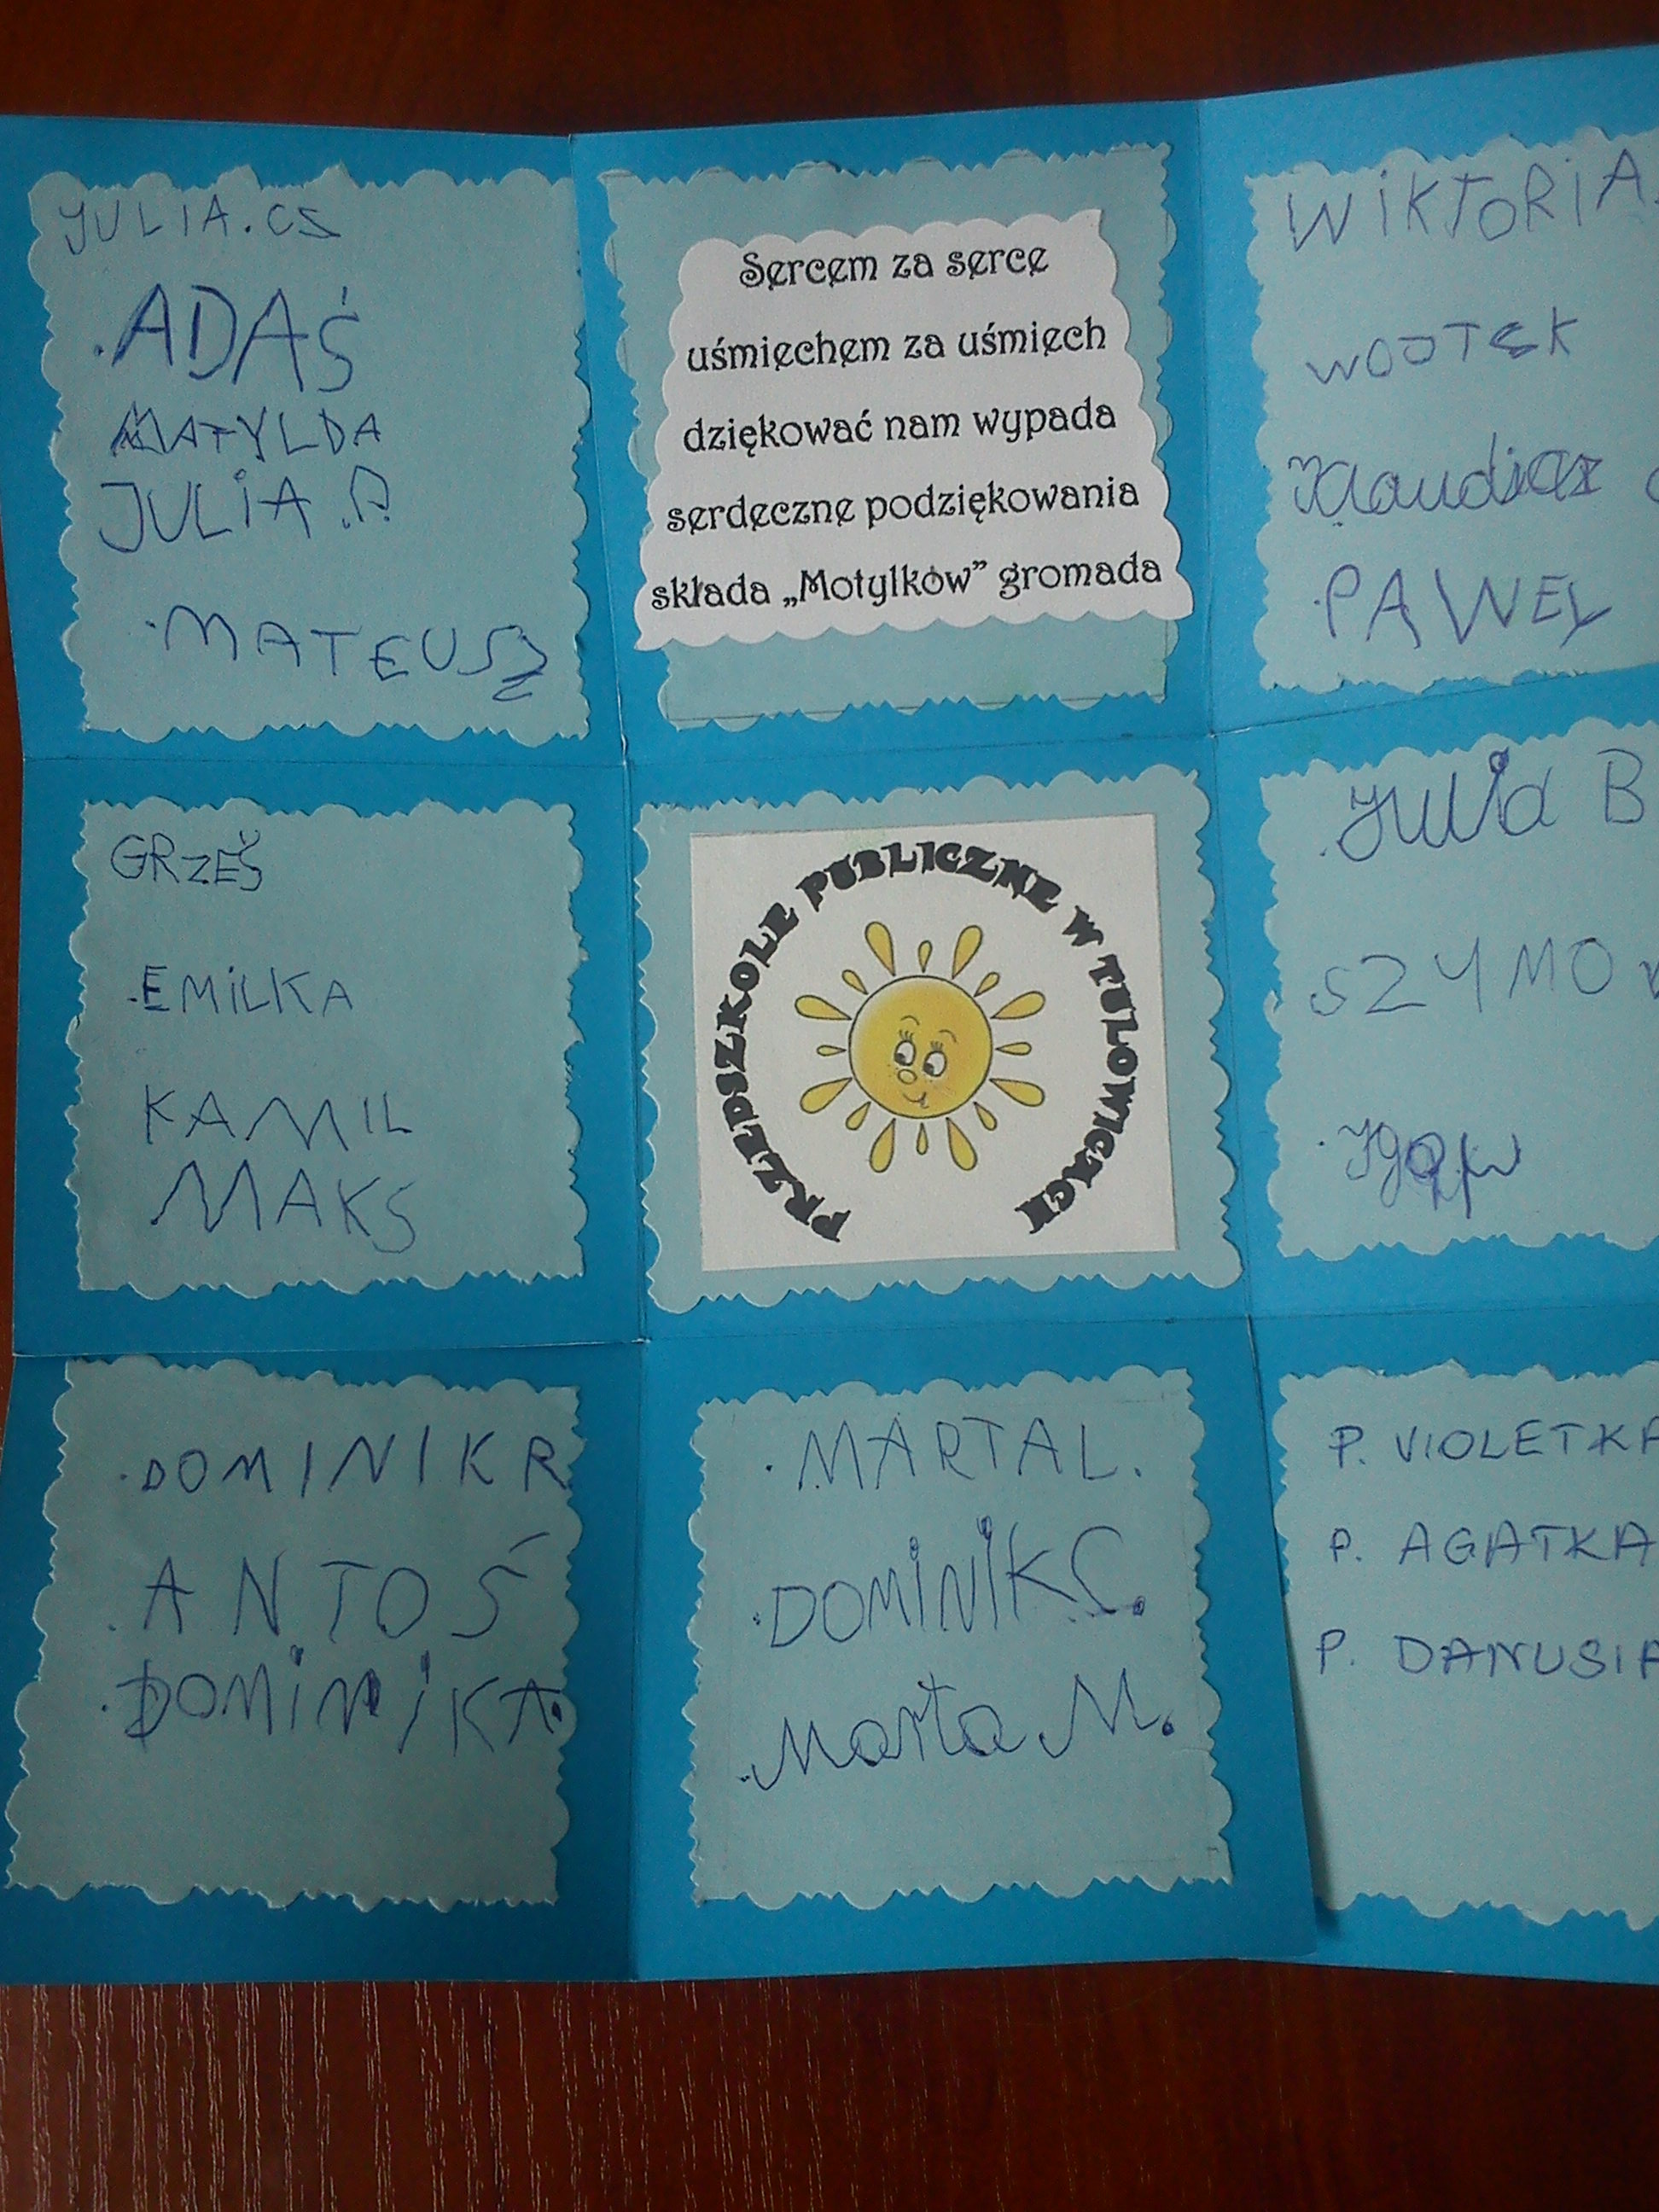 JULIA.CS
.ADAŚ
MATYLDA
JULIA.P.
.MATEUSZ
Sercem za serce
uśmiechem za uśmiech
dziękować nam wypada
serdeczne podziękowania
składa „Motylków” gromada
WIKTORIA.
WOJTEK
Klaudia
.PAWEŁ
GRZEŚ
.EMILKA
KAMIL
MAKS
PRZEDSZKOLE PUBLICZNE W TUŁOWICACH
.Julia B
SZYMON
.DOMINIK R
.ANTOŚ
.DOMINIKA.
.MARTA L.
.DOMINIK C.
.Marta M.
P. VIOLETKA
P. AGATKA
P. DANUSIA